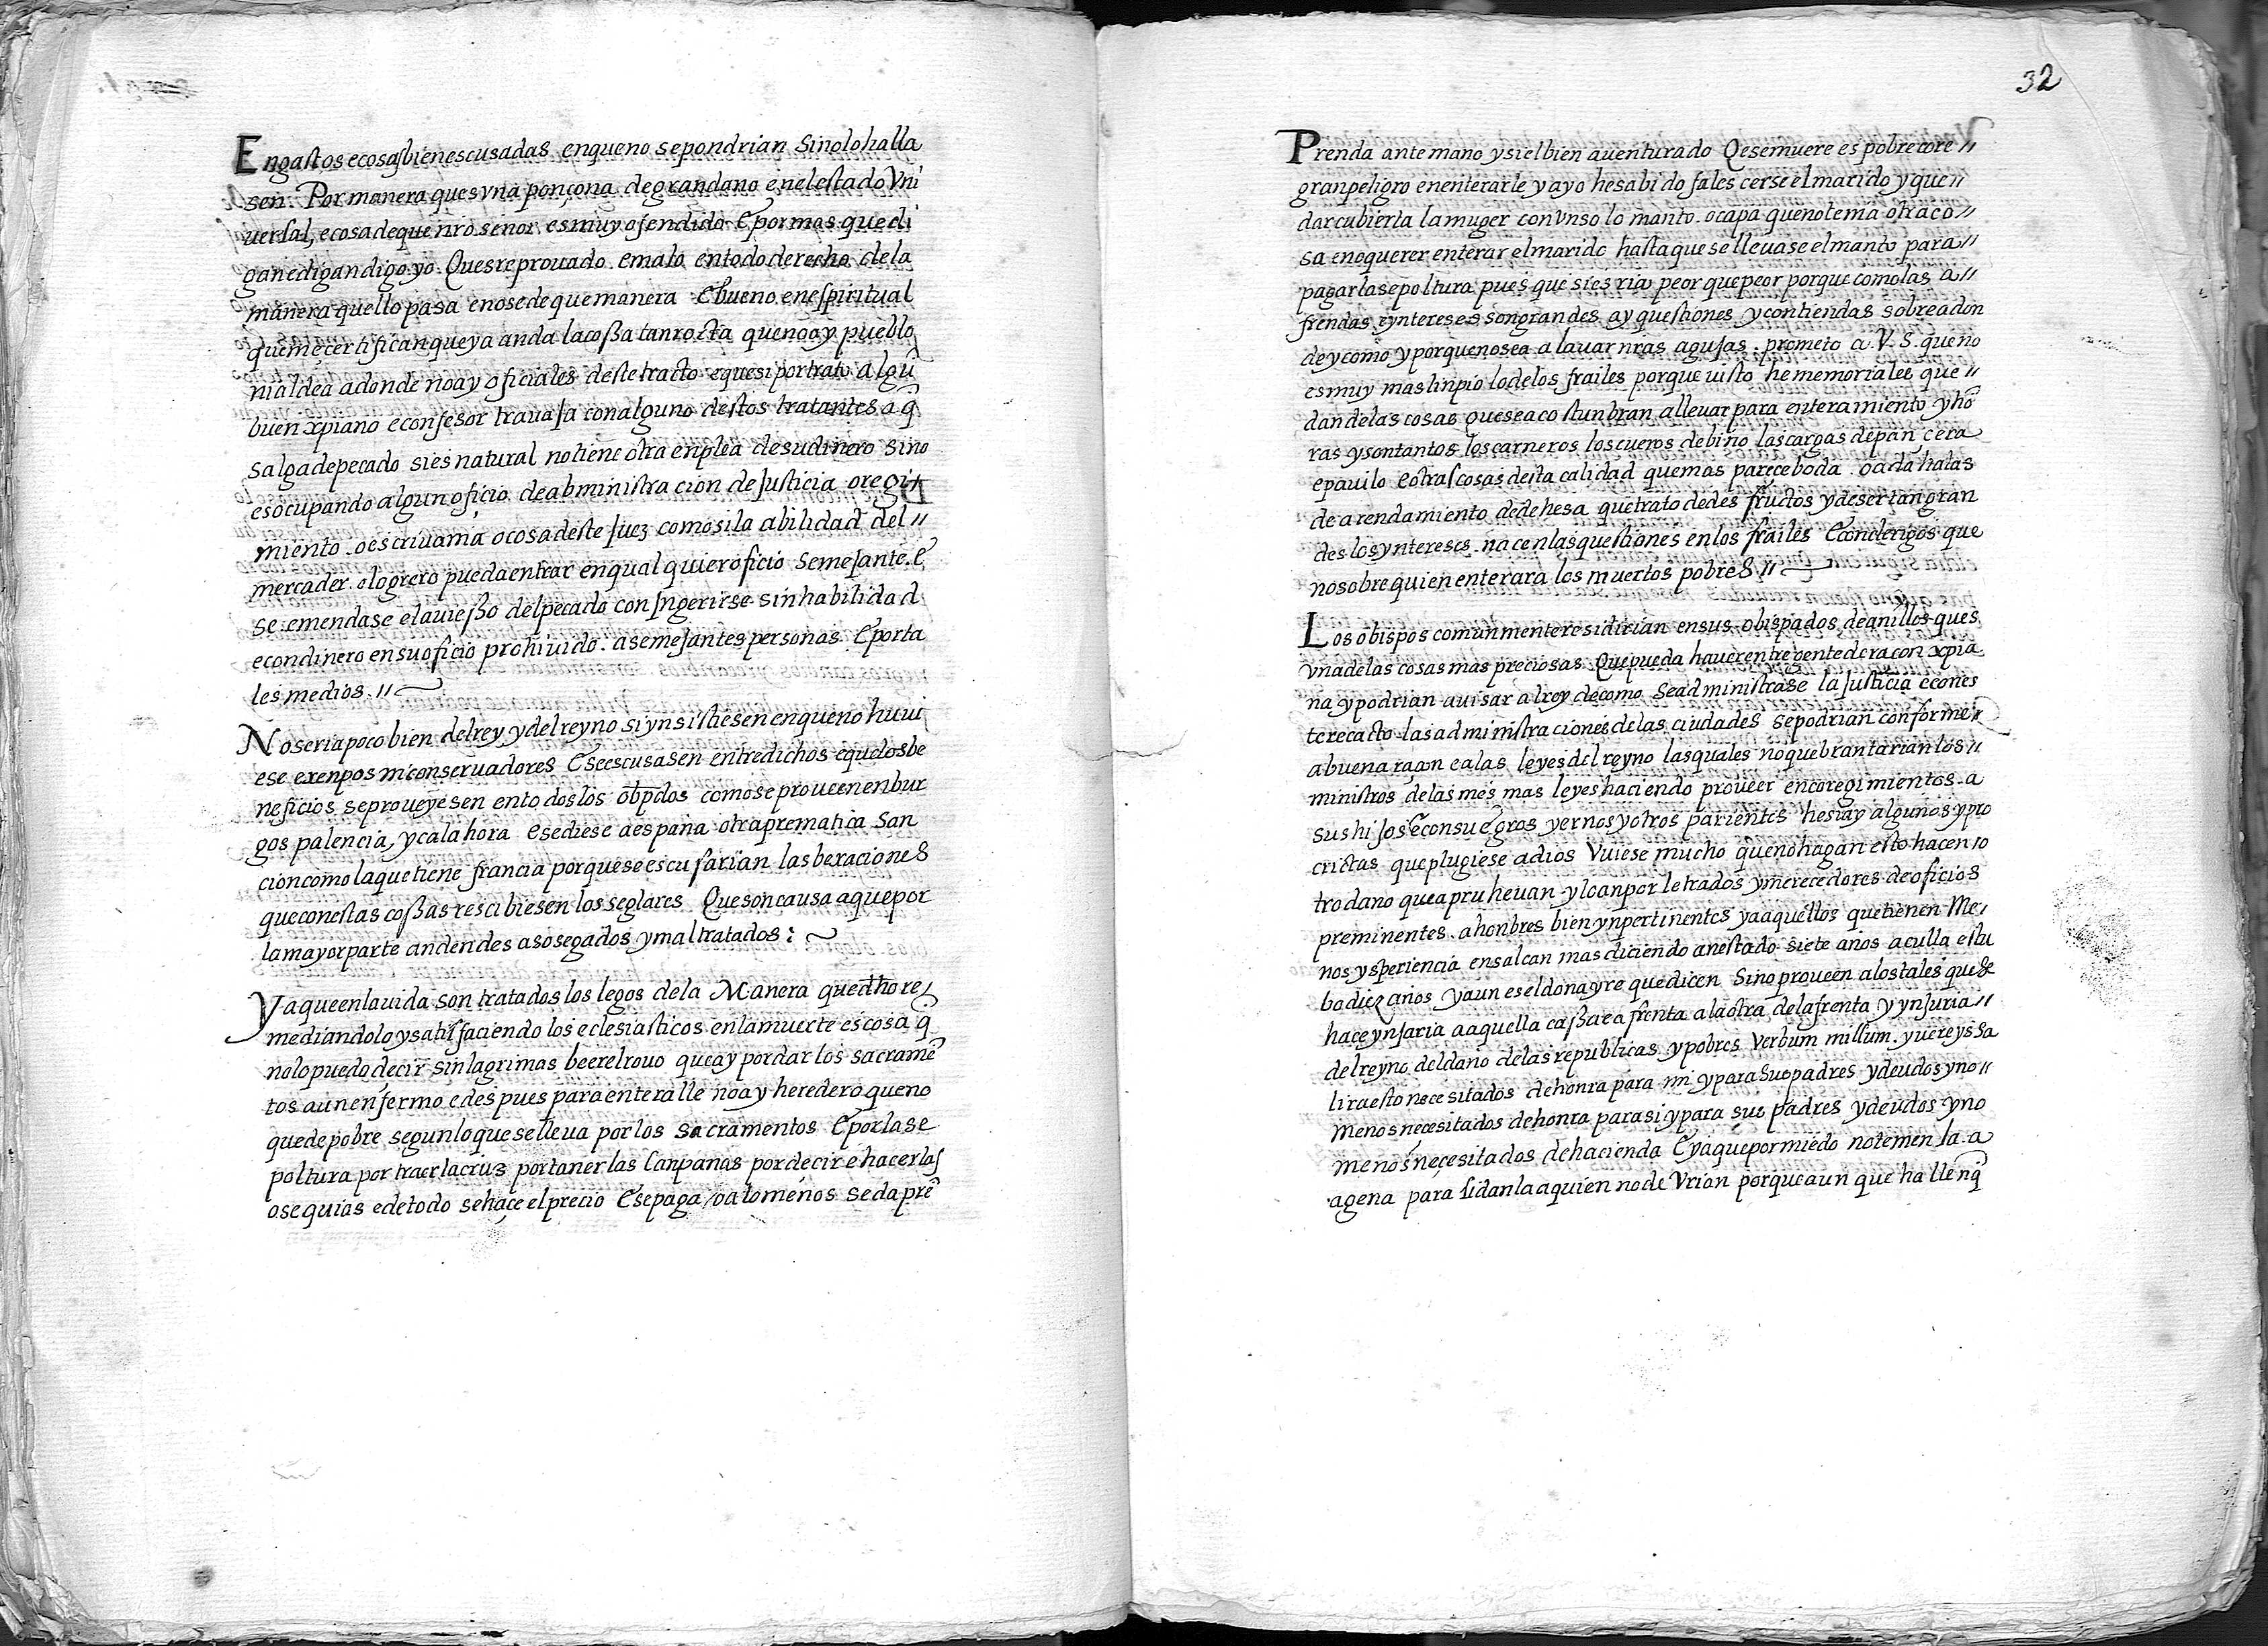 Engastos ecosasbienescusadas enqueno sepondrian Sinolohalla
sen. Por manera quesvna ponçona degrandano enelestado Vni
uersal, ecosadeque nr̃o senor esmuy ofendido E por mas que di
ganedigandigo yo Quesreprouado emalo entodo derecho dela
manera quello pasa enosedequemanera Ebueno enespiritual
quemecertificanqueya anda lacoßa tanrocta quenoay pueblo
nialdea adonde noay oficiales deste tracto equesi por trato algũ
buen xp̃iano econfesor trauaja conalguno destos tratantes a q̃
salgadepecado sies natural notiene otra enplea desudinero sino
esocupando algun oficio deabministracion de Justicia oregi
miento oescriuama ocosadeste juez comosila abilidad del
mercader ologrero puedaentrar enqualquieroficio semejante E
se emendase elauießo delpecado con Jngerirse sinhabilidad
econdinero ensuoficio prohiuido asemejantes personas E porta
les medios //
Noseriapoco bien delrey ydelreyno siynsistiesen enqueno huui
ese exenpos niconseruadores Eseescusasen entredichos equelosbe
neficios seproueyesen entodoslos ob̃pdos comoseproueenenbur
gos palencia, ycalahora esediese aespaña otraprematica San
cioncomo laquetiene francia porqueseescusarian lasbexaciones
queconestas coßas rescibiesen losseglares Quesoncausa aquepor
lamayorparte andendes asosegados ymaltratados: ~
Yaqueenlauida son tratadoslos legos dela Manera quedħo re
mediandolo ysatisfaciendo los eclesiasticos enlamuerte escosa q̃
nolopuedodecir sinlagrimas beerelrouo queay pordar los sacramẽ
tos aunenfermo edespues paraenteralle noay heredero queno
quedepobre segunloqueselleua porlos Sacramentos E porlase
poltura por traerlacruz portanerlas Canpanas pordecir ehacerlas
osequias edetodo sehace elprecio Esepaga / oalomenos sedaprẽ
32
Prenda antemano ysielbien auenturado Qesemuere es pobrecore //
granpeligro enenterarle yayo hesabido fales cerse elmarido yque //
darcubierta lamuger convnsolo manto ocapa quenotema otraco //
sa enoquerer enterar elmarido hastaque selleuase elmanto para //
pagarlasepoltura pues que siesria peor quepeor porque comolas a //
frendas eyntereses songrandes ay questiones ycontiendas sobreadon
deycomo yporquenosea alauar nr̃as agujas prometo a V. S. queno
esmuy mas linpio lodelos frailes porque uisto he memoriales que //
dandelas cosas queseacostunbran alleuar para enteramiento yhõ
ras ysontantos loscarneros loscueros debino lascargas depan cera
epauilo eotrascosas desta calidad quemas pareceboda oadahalas
dearendamiento dedehesa quetrato dedes fructos ydesertangran
des losyntereses nacenlasquestiones enlos frailes Econclerigos que
nosobrequien enterara los muertos pobres //
Los obispos comunmenteresidirian ensus obispados deanillos ques
vnadelas cosas mas preciosas Quepueda hauerentregentederacon xp̃ia
na ypodrian auisar alrey decomo Seadministrase la Justicia econes
terecacto lasadministracionesdelas ciudades sepodrian conforme
abuena raçon ealas leyesdel reyno lasquales noquebrantarianlos //
ministros delasmes mas leyeshaciendo proueer encoregimientos a
sushijos econsuegros yernosyotros parientes hesiay algunos ypro
cristas queplugiese adios Vuiese mucho quenohagan esto hacenso
trodano queapruheuan yloanpor letrados ymerecedores deoficios
preminentes ahonbres bien ynpertinentes yaaquellos quetienen Me
nos ysperiencia ensalcan mas diciendo anestado siete años aculla estu
bodiez años yaun eseldonayre quedicen Sinoproueen alostales quese
haceynjuria aaquella caßaea frenta alaotra delafrenta yynjuria //
delreyno deldaño delasrepublicas ypobres Verbum nullum yuereyssa
liraesto necesitados dehonra para mi yparasuspadres ydeudos yno //
menosnecesitados dehonra parasi ypara sus padres ydeudos yno
menosneçesitados dehacienda Eyaquepormiedo notemen la a
agena para sidanlaaquien nodeVrian porqueaun que hallenq̃